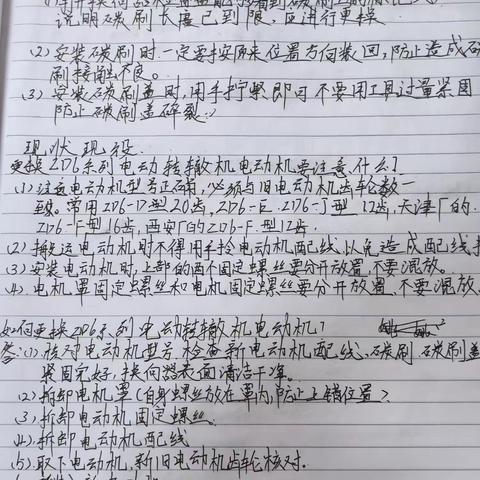 说明碳刷长度已到限,应进行更换
(2)安装碳刷时一定要按原来位置方向装回,防止造成碳
刷接触不良。
(3)安装碳刷盖时,用手拧紧即可不要用工具过量紧固
防止碳刷盖碎裂。
现状现役
更换ZD6系列电动转辙机电动机要注意什么?
(1)注意电动机型号正确,必须与旧电动机齿轮数一
致。常用ZD6-D型20齿,ZD6-E.ZD6-J型 17齿,天津厂的.
ZD6-F型16齿,西安厂的ZD6-F.型12齿.
(2)搬运电动机时不得用手拎电动机配线,以免造成配线
(3)安装电动机时,上部的两个固定螺丝要分开放置,不要混放。
(4).电机罩固定螺丝和电机固定螺丝要分开放置 不要混放
如何更换ZD6系列电动转辙机电动机?
答:(1)核对电动机型号 检查新电动机配线、碳刷 碳刷盖
紧固完好,换向器表面清洁干净。
(2)拆卸电动机罩(自身螺丝放在罩内,防止上错位置)
(3)拆卸电动机固定螺丝.
(4).拆卸电动机配线
(5)取下电动机,新旧电动机齿轮核对.